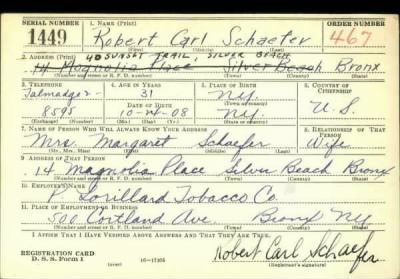 SERIAL NUMBER 1. NAME (Print) ORDER NUMBER
1449 Robert Carl Schaefer 467
(First) (Middle) (Last)
40 SUNSET TRAIL, SILVER BEACH
2. ADDRESS (Print)
14 Magnolia Place Silver Beach Bronx
(Number and street or R. F. D. number) (Town) (County) (State)
3. TELEPHONE 4. AGE IN YEARS 5. PLACE OF BIRTH 6. COUNTRY OF CITIZENSHIP
Talmadge 31 N.Y.
DATE OF BIRTH U.S.
8595 10-24-08 N.Y.
(Exchange) (Number) (Mo.) (Day) (Yr.) (State or country)
7. NAME OF PERSON WHO WILL ALWAYS KNOW YOUR ADDRESS 8. RELATIONSHIP OF THAT PERSON
Mrs. Margaret Schaefer Wife
(Mr., Mrs., Miss) (First) (Middle) (Last)
9. ADDRESS OF THAT PERSON
14 Magnolia Place Silver Beach Bronx
(Number and street or R. F. D. number) (Town) (County) (State)
10. EMPLOYER'S NAME
Lorillard Tobacco Co.
11. PLACE OF EMPLOYMENT OR BUSINESS
500 Cortland Ave. Bronx NY
(Number and street or R. F. D. number) (Town) (County) (State)
I AFFIRM THAT I HAVE VERIFIED ABOVE ANSWERS AND THAT THEY ARE TRUE.
REGISTRATION CARD
D. S. S. Form 1 (over) 16-17105
Robert Carl Schaefer
(Registrant's signature)